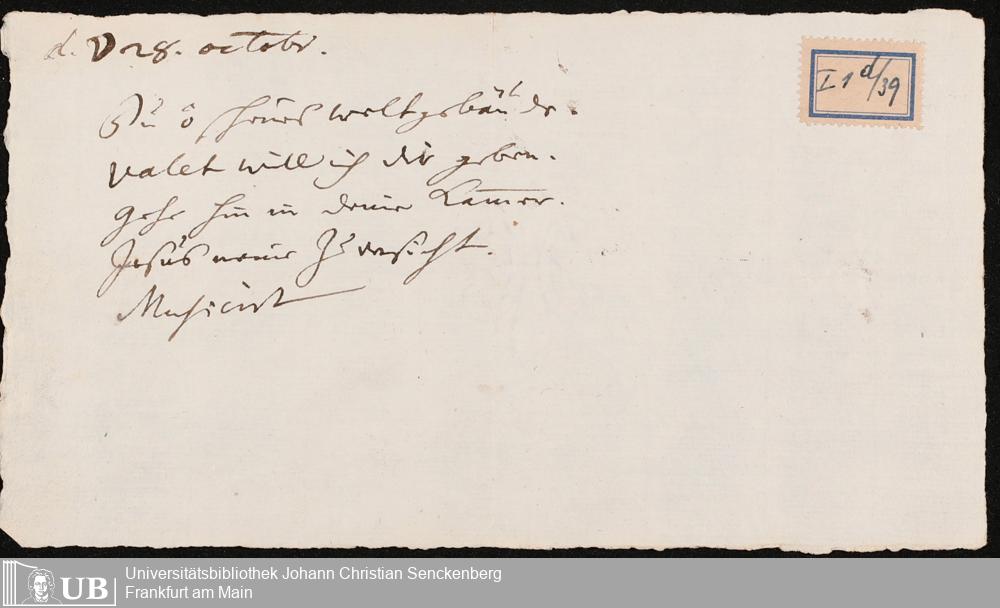 d. 28. octobr.
I 1 d/39
Du o schönes weltgebäude.
valet will ich dir geben.
gehe hin in deine Kam̅er.
Jesus meine Zuversicht.
Musicirt
UB
Universitätsbibliothek Johann Christian Senckenberg
Frankfurt am Main